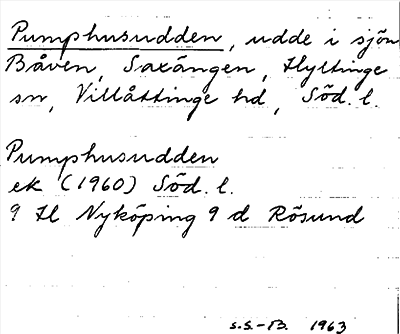 Pumphusudden, udde i sjön
Båven, Saxängen, Hyltinge
sn, Villåttinge hd, Söd. l.
Pumphusudden
ek (1960) Söd. l.
9 H Nyköping 9 d Rösund
S.S.-B. 1963